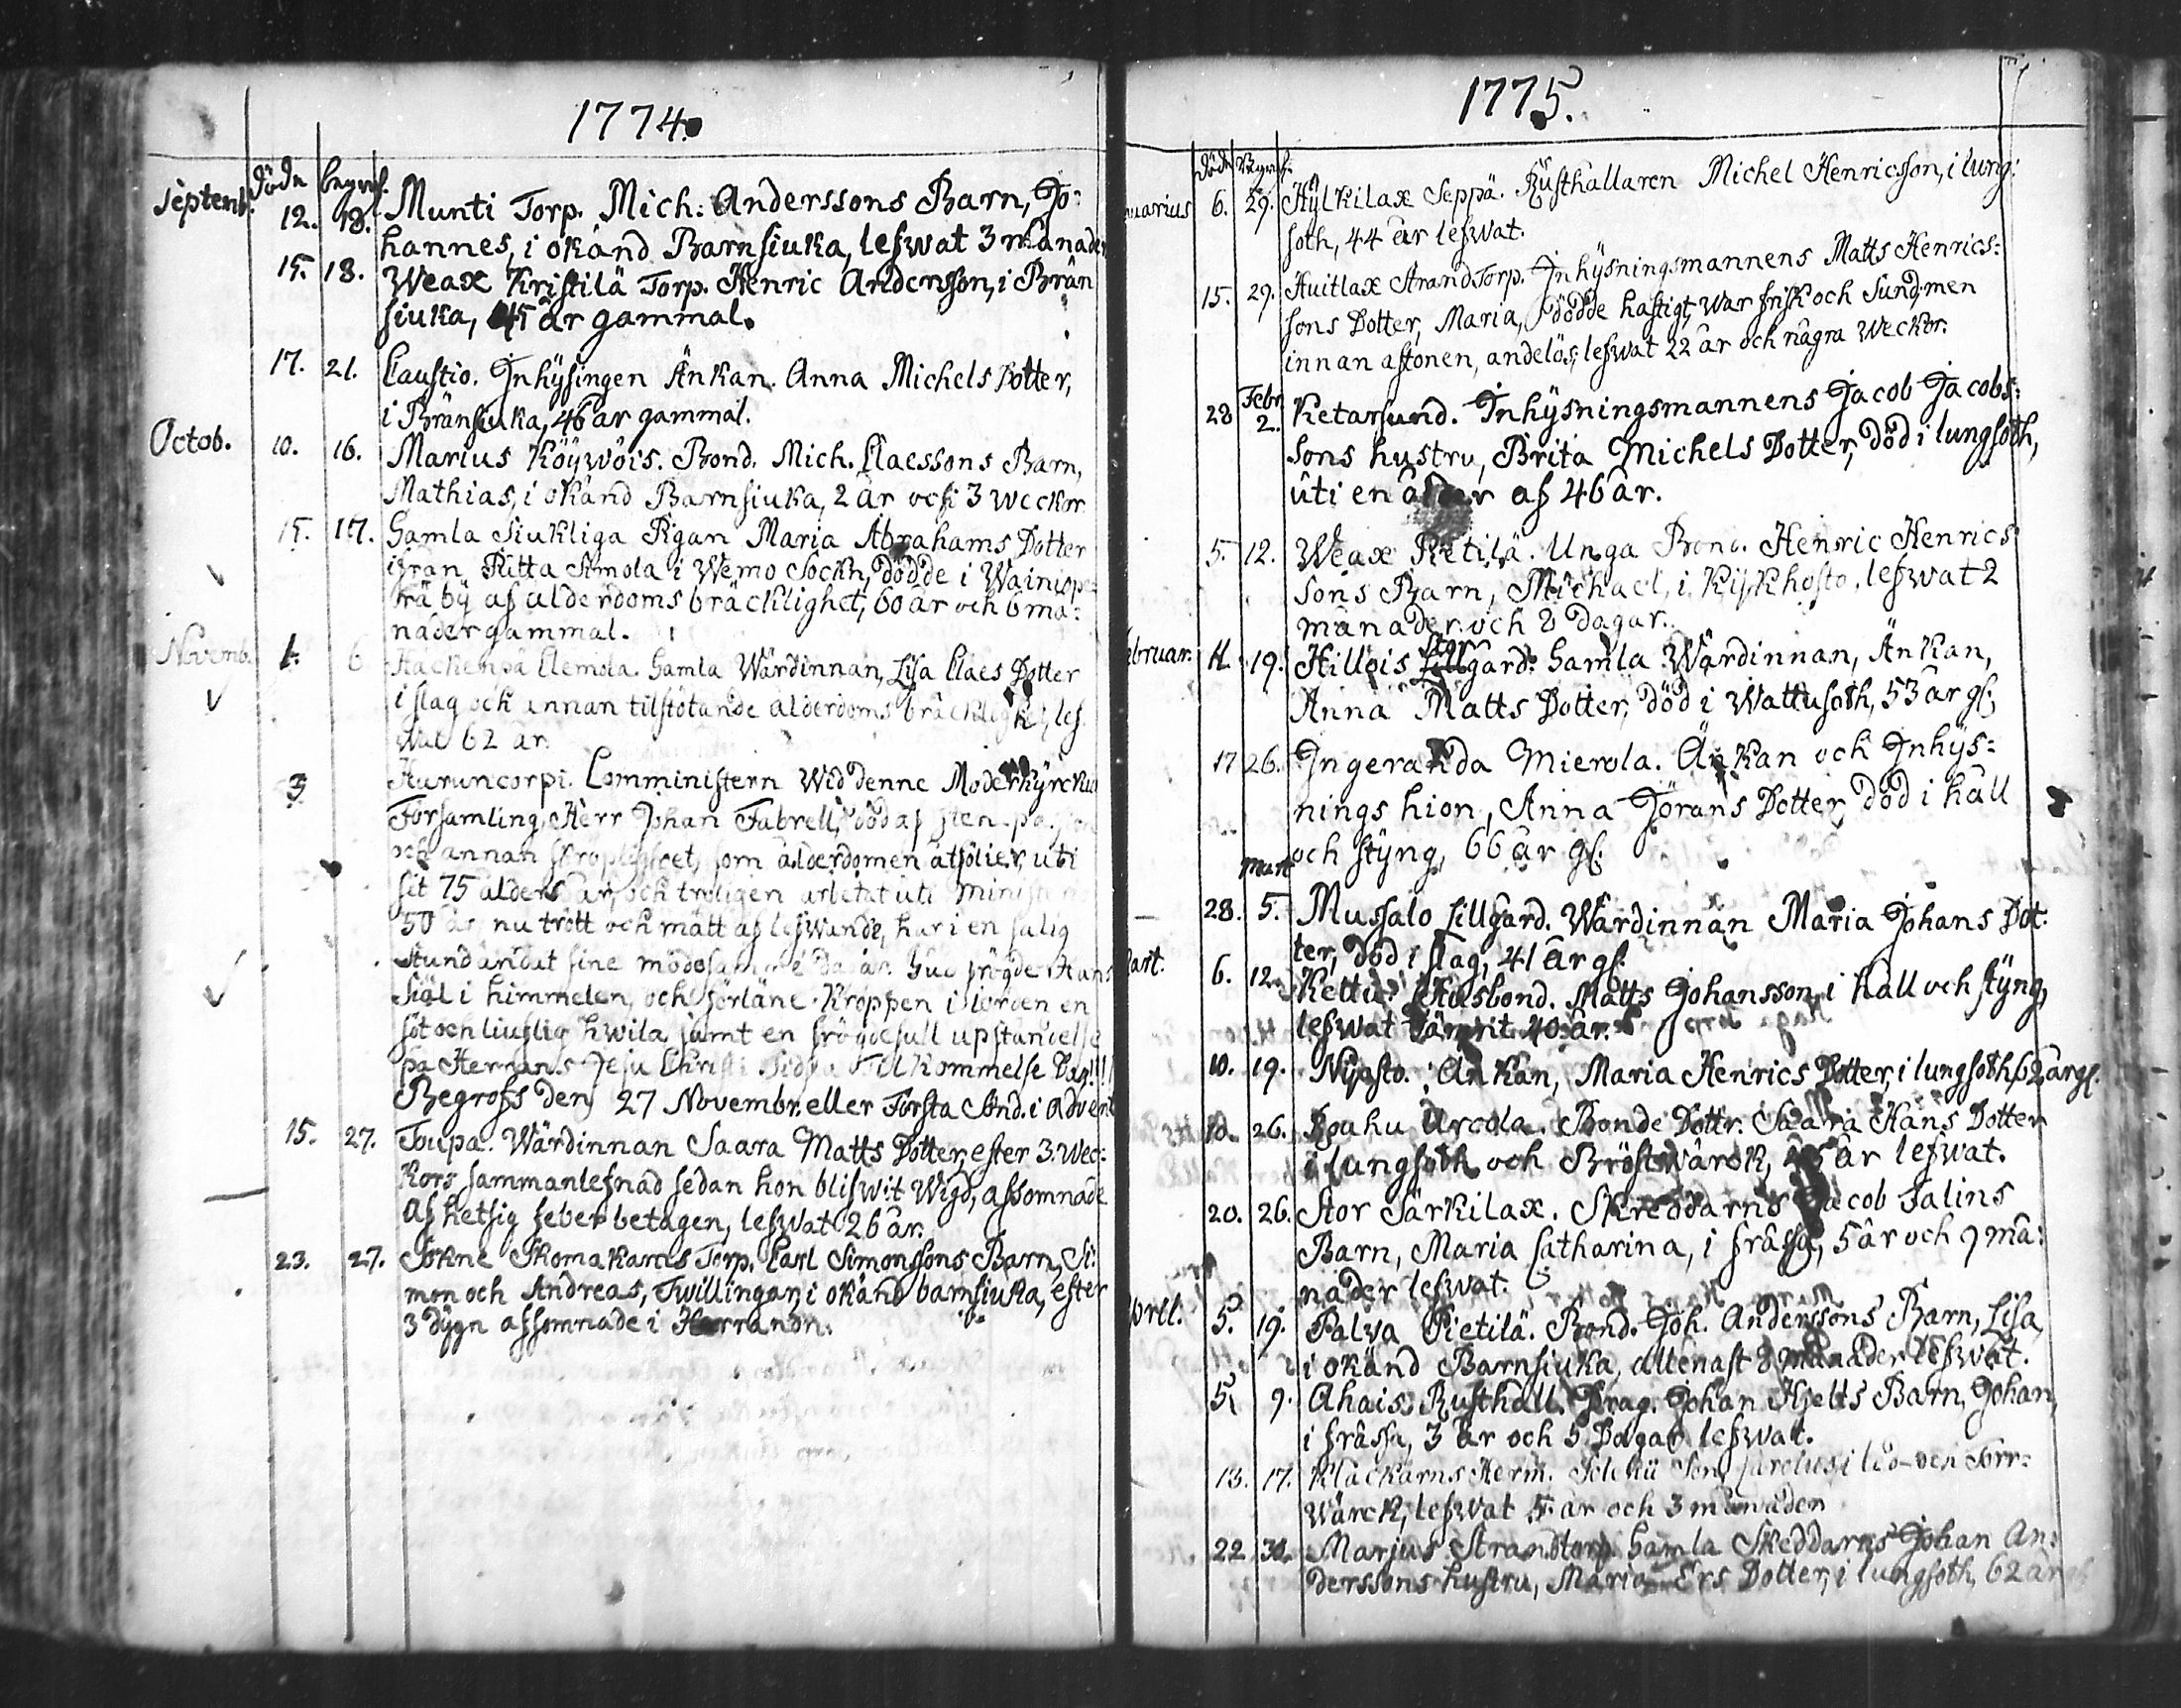 1774.
döda begrafv.
Septemb. 12. 18. Munti Torp. Mich: Anderssons Barn, Jo-
hannes, i okänd Barnsiuka, lefwat 3 månader
15. 18. Weax Kristilä Torp. Henric Andersson, i Brän
siuka, 45 år gammal.
17. 21. Caustio. Inhysingen Änkan. Anna Michels Dotter,
i Bränsiuka, 46 år gammal.
Octob. 10. 16. Marius Köywöis. Bond. Mich. Claessons Barn,
Mathias, i okänd Barnsiuka, 2 år och 3 weckor
15. 17. Gamla Siukliga Pigan Maria Abrahams Dotter
ifrån Ritta Simola i Wemo Sockn, dödde i Wainiop-
rä by af ålderdoms bräcklighet, 60 år och 6 må-
nader gammal.
Novemb. 1. 6 Hackenpä Clemola. Gamla Wärdinnan, Lisa Claes Dotter
i slag och annan tilstötande ålderdoms bräcklighet, lef
wat 62 år.
3 Huruncorpi. Comministern wid denne Moderkyrcku
Församling, Herr Johan Fabrell, död af sten-passion
och annan skröplighet, som ålderdomen åtfölier, uti
sit 75 ålders år, och troligen arbetat uti Ministerio
50 år, nu trött och mätt af lefwande, har i en salig
stund ändat sine mödosamme dagar. Gud frögde Hans
Siäl i himmelen, och förläne Kroppen i iorden en
söt och liuflig hwila, jämt en frögdefull upståndelse
på Herrans Jesu Christi sidsta Tilkommelse Dag!!!
Begrofs den 27 Novembr. eller Första Sönd. i Advent
15. 27. Toupa. Wärdinnan Saara Matts Dotter, efter 3. Wec-
kors sammanlefnad sedan hon blifwit Wigd, afsomnade
af hetsig feber betagen, lefwat 26 år.
23. 27. Sökne Skomakarens Torp. Carl Simonssons Barn, Si-
mon och Andreas, Twillingar, i okänd barnsiuka, efter
3 dygn afsomnade i Herranom.
1775.
Döde Begr.
nuarius 6. 29. Hylkilax Seppä. Rusthallaren Michel Henricsson, i lung-
soth, 44 år lefwat.
15. 29. Huitlax Strand Torp. Inhysningsmannens Matts Henrics-
sons Dotter, Maria, dödde hastigt, war frisk och sund, men
innan aftonen, andelös; lefwat 22 år och några Weckor.
28 Febr 2. Ketarsund. Inhysningsmannens Jacob Jacobs-
sons hustru, Brita Michels Dotter, död i lungsoth,
uti en ålder af 46 år.
5. 12. Weax Pietilä. Unga Bond. Henric Henrics
sons Barn, Michael, i Kijkhosto, lefwat 2
månader och 8 dagar.
ebruar. 11. 19. Hillois Stor Lillgård. Gamla Wärdinnan, Änkan,
Anna Matts Dotter, död i Wattusoth, 53 år gl.
17 26. Ingeranda Mierola. Änkan och Inhys-
nings hion, Anna Jörans Dotter, död i håll
och styng, 66 år gl.
28. Mart 5. Mussalo Lillgård. Wärdinnan Maria Johans Dot-
ter, död i slag, 41 år gl.
art. 6. 12. Kettu. Husbond. Matts Johansson, i håll och styng,
lefwat jämnt 40 år.
10. 19. Nypsto. Änkan, Maria Henrics Dotter, i lungsoth, 62 år gl.
18. 26. Douhu Urcola. Bonde Dottr. Saara Hans Dotter
i lungsoth och Bröstwärck, 25 år lefwat.
20. 26. Stor Särkilax. Skreddarns Jacob Talins
Barn, Maria Catharina, i fråssa, 5 år och 9 må-
nader lefwat.
Aprel. 5. 19. Palva Pietilä. Bond. Joh. Anderssons Barn, Lisa,
i okänd Barnsiuka, allenast 8 månader lefwat.
5. 9. Ahais Rusthåll. Drag. Johan Hjelts Barn, Johan,
i fråssa, 3 år och 5 Dagar lefwat.
13. 17. Klåckarns Herm. Son Carolus i
Wärck, lefwat 5 år och 3 månader
22 30. Marjus Strandtorp. Gamla Skreddarns Johan An-
derssons hustru, Maria Ers Dotter, i lungsoth, 62 år